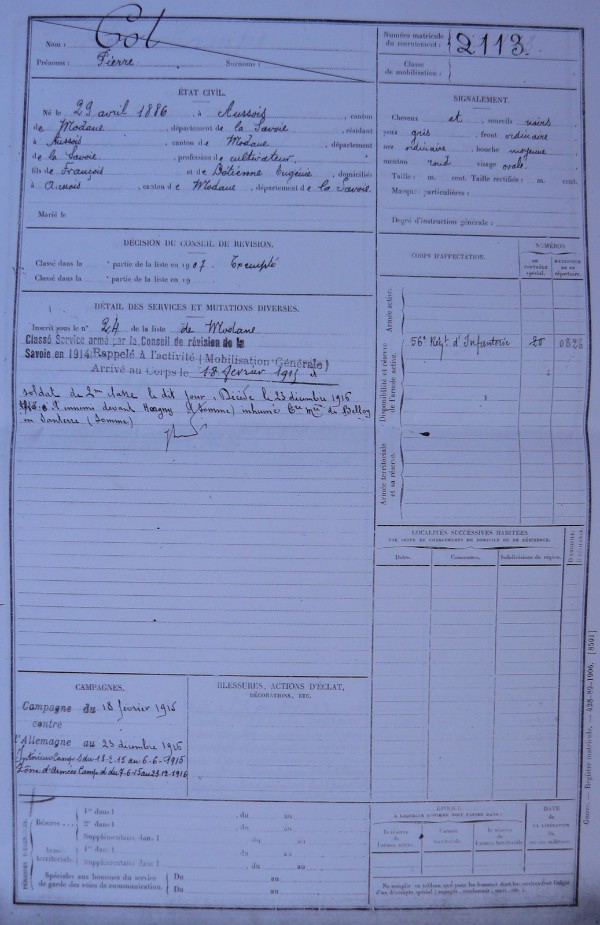 Nom : Col
Prénoms : Pierre Surnoms :
Numéro matricule
du recrutement : 2113
Classe
de mobilisation :
ÉTAT CIVIL.
Né le 29 avril 1886, à Aussois, canton
de Modane, département de la Savoie, résidant
à Aussois, canton de Modane, département
de la Savoie, profession de cultivateur,
fils de François et de Bôtienne Eugénie, domiciliés
à Aussois, canton de Modane, département de la Savoie.
Marié le
SIGNALEMENT.
Cheveux et sourcils noirs
yeux gris, front ordinaire
nez ordinaire, bouche moyenne
menton rond visage ovale.
Taille : m. cent. Taille rectifiée : m. cent.
Marques particulières :
Degré d'instruction générale :
DÉCISION DU CONSEIL DE RÉVISION.
Classé dans la partie de la liste en 1907. Exempté
Classé dans la partie de la liste en 19
DÉTAIL DES SERVICES ET MUTATIONS DIVERSES.
Inscrit sous le n° 24 de la liste de Modane
Classé Service armé par la Conseil de révision de la
Savoie en 1914 Rappelé à l'activité (Mobilisation Générale)
Arrivé au Corps le 18 février 1915 &
soldat de 2me classe le dit jour. Décédé le 23 décembre 1916
devant (Somme) inhumé de Belloy
en Santerre (Somme)
CORPS D'AFFECTATION.
NUMÉROS
au contrôle spécial.
matricule ou au répertoire.
Armée active.
Disponibilité et réserve
de l'armée active.
56e Régt d'Infanterie 80 0826
Armée territoriale
et sa réserve.
LOCALITÉS SUCCESSIVES HABITÉES
PAR SUITE DE CHANGEMENTS DE DOMICILE OU DE RÉSIDENCE.
Dates. Communes. Subdivisions de région. D domicile. R résidence.
CAMPAGNES.
Campagne du 18 février 1915
contre
l'Allemagne au 23 décembre 1916
Intérieur Camp. S du 18-2-15 au 6-6-1915
Zone d'Armées Camp. d du 7-6-15 au 23-12-1916
BLESSURES, ACTIONS D'ÉCLAT,
DÉCORATIONS, ETC.
PÉRIODES D'EXERCICES.
Réserve
1re dans l , du au
2e dans l , du au
Supplémentaire dans l , du au
Armée
territoriale.
1re dans l , du au
Supplémentaire dans l , du au
Spéciales aux hommes du service
de garde des voies de communication.
Du au
Du au
ÉPOQUE
À LAQUELLE L'HOMME DOIT PASSER DANS :
la réserve de l'armée active. l'armée territoriale. la réserve de l'armée territoriale.
DATE
DE LA LIBÉRATION
du service militaire.
Gmov. — Registre matricule. — 428-89-1906. [8591]